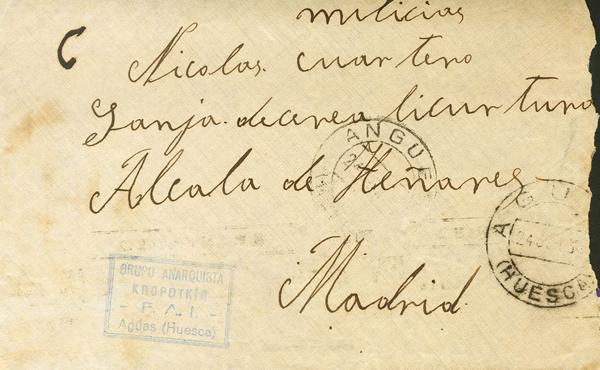 milicias
C
Nicolas cuartero
Ganja decerea licurtura
Alcala de Henares
Madrid
ANGUE
AGU
(HUESCA)
GRUPO ANARQUISTA
KROPOTKIN
- F. A. I. -
Aguas (Huesca)